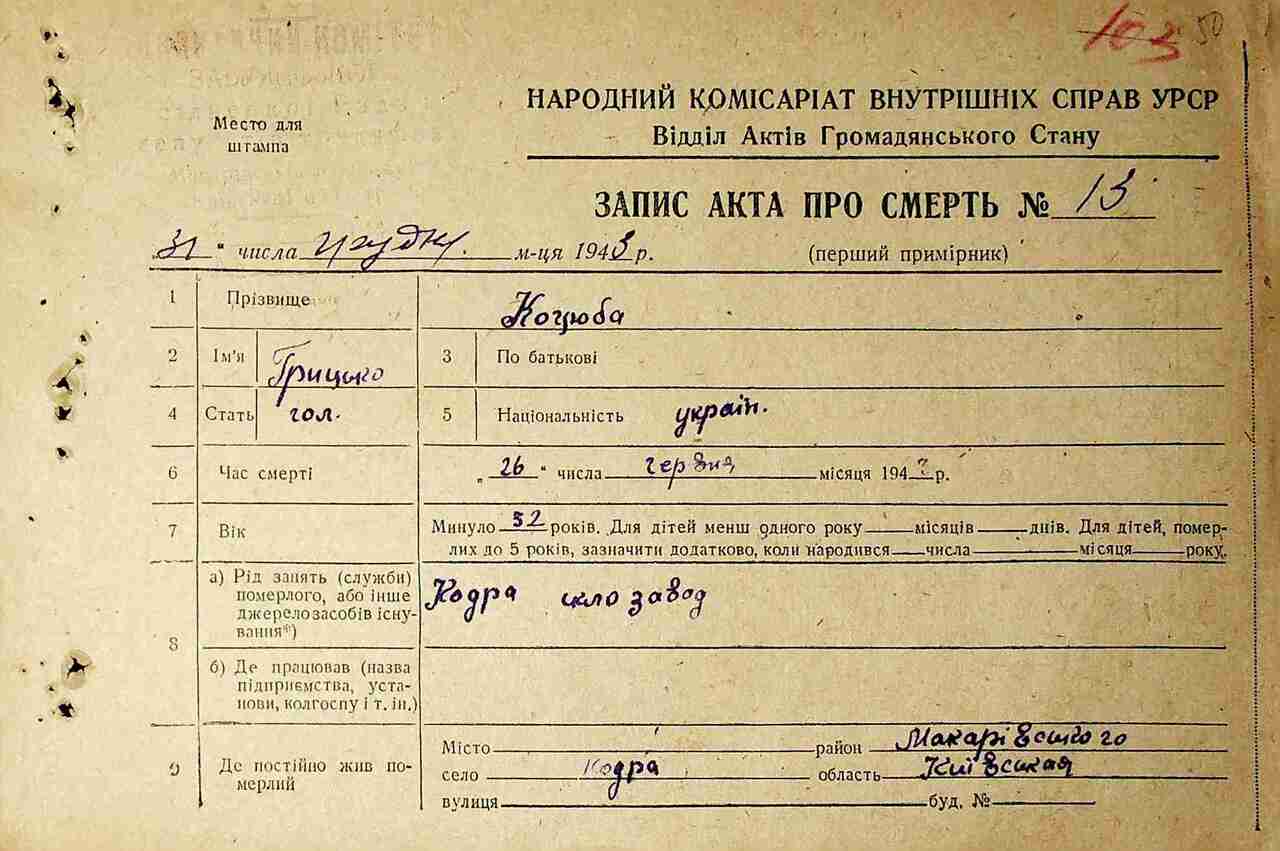 103 50
НАРОДНИЙ КОМІСАРІАТ ВНУТРІШНІХ СПРАВ УРСР
Место для
штампа
Відділ Актів Громадянського Стану
ЗАПИС АКТА ПРО СМЕРТЬ № 13
31 " числа грудня м-ця 1943 р. (перший примірник)
1 Прізвище Коцюба
2 Ім'я Грицько 3 По батькові
4 Стать чол. 5 Національність україн.
6 Час смерті „ 26 " числа червня місяця 194 р.
7 Вік Минуло 32 років. Для дітей менш одного року місяців днів. Для дітей, помер-
лих до 5 років, зазначити додатково, коли народився числа місяця року.
8 а) Рід занять (служби)
померлого, або інше
джерело засобів існу-
вання*)
Кодра скло завод
б) Де працював (назва
підприємства, уста-
нови, колгоспу і т. ін.)
9 Де постійно жив по-
мерлий
Місто район Макарівського
село Кодра область Київская
вулиця буд. №